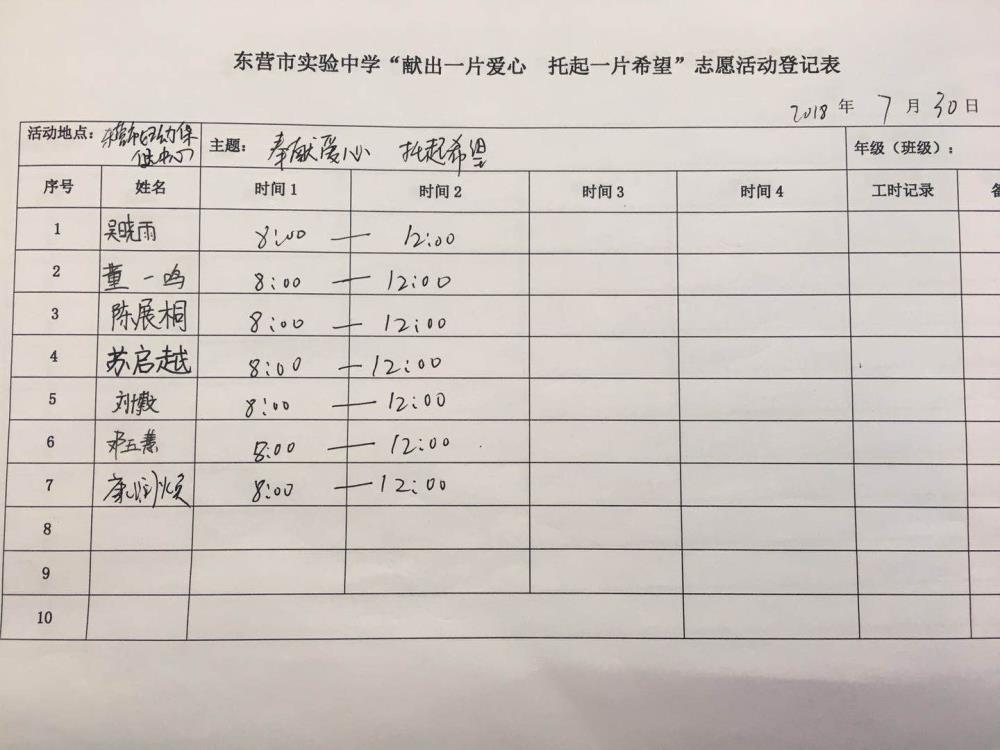 东营市实验中学“献出一片爱心 托起一片希望”志愿活动登记表
2018 年 7 月 30 日
活动地点：东营市妇幼保 主题： 奉献爱心 托起希望 年级（班级）：
健中心
序号 姓名 时间 1 时间 2 时间 3 时间 4 工时记录
1 吴晓雨 8:00 — 12:00
2 董一鸣 8:00 — 12:00
3 陈展桐 8:00 — 12:00
4 苏启越 8:00 — 12:00
5 刘 8:00 — 12:00
6 邓五 8:00 — 12:00
7 康润 8:00 — 12:00
8
9
10